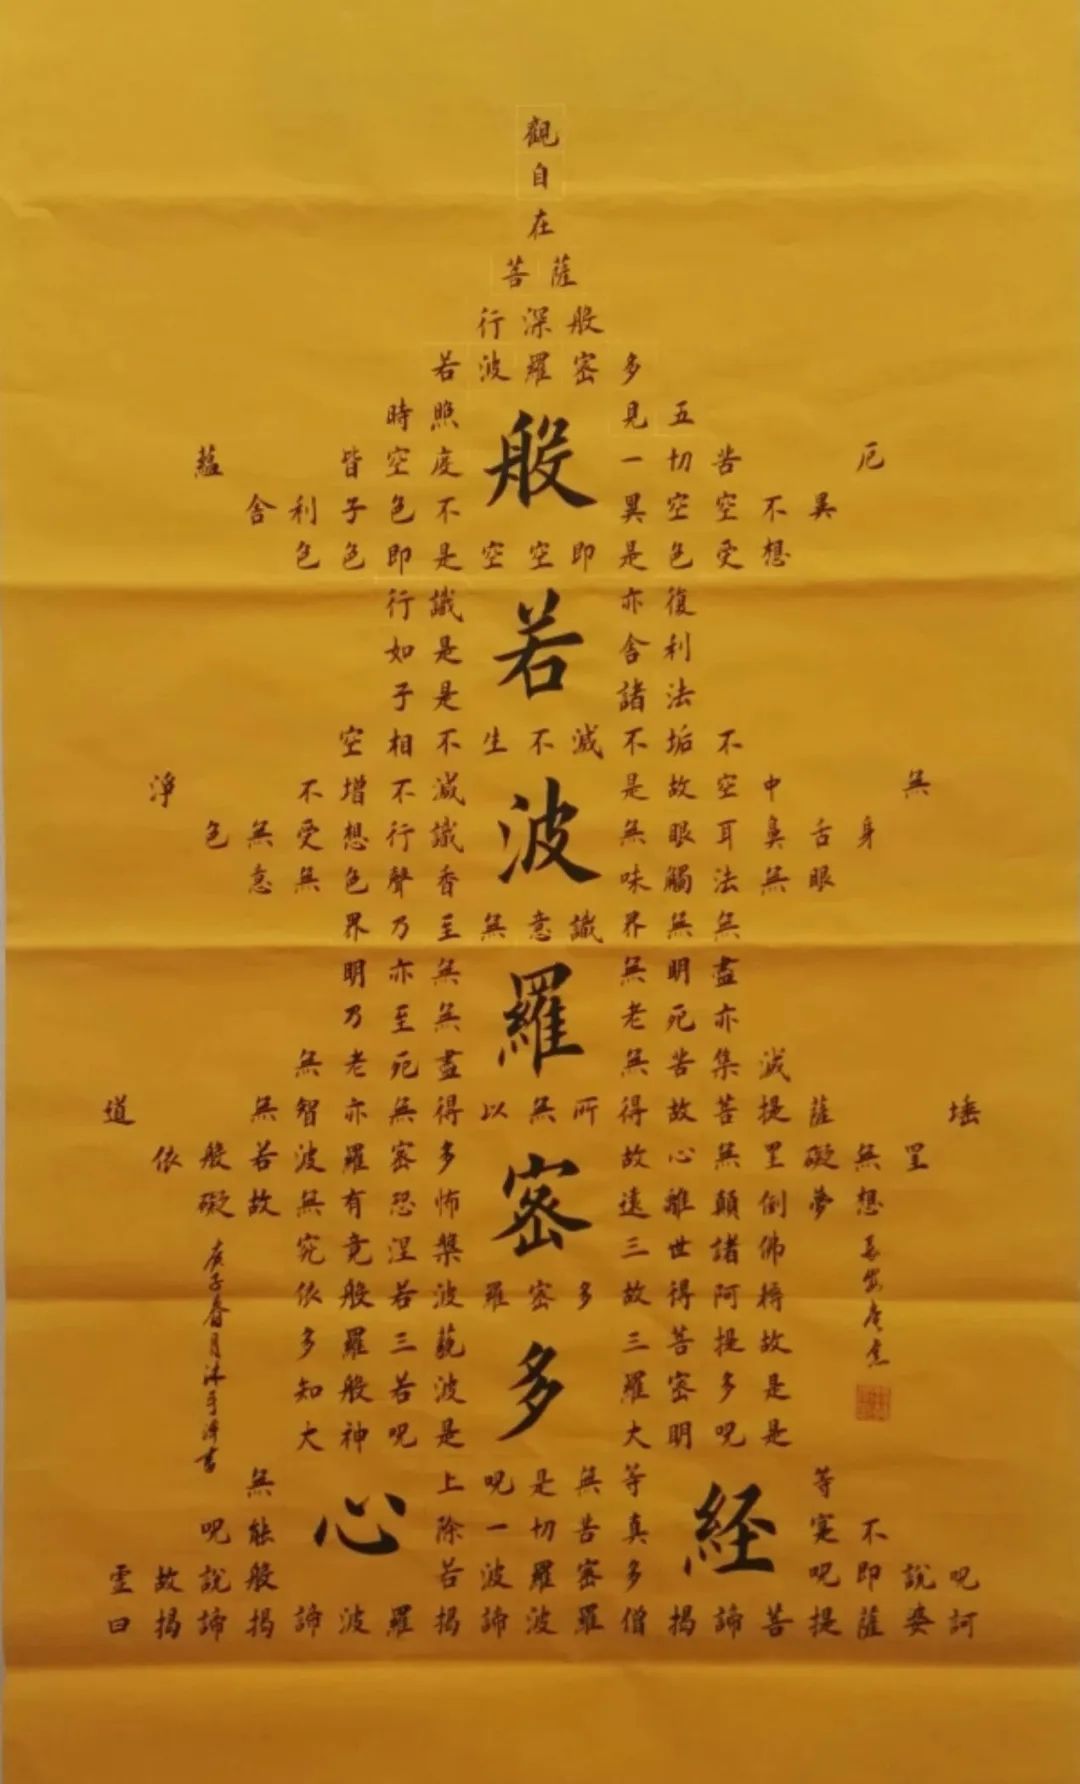 觀
自
在
菩薩
行深般
若波羅密多
時照見五
蘊皆空度一切苦厄
舍利子色不異空空不異
色色即是空空即是色受想
行識亦復
如是舍利
子是諸法
空相不生不滅不垢不
淨不增不減是故空中無
色無受想行識無眼耳鼻舌身
意無色聲香味觸法無眼
界乃至無意識界無無
明亦無無明盡
乃至無老死亦
無老死盡無苦集滅
道無智亦無得以無所得故菩提薩埵
依般若波羅密多故心無罣
礙故無有恐怖遠離顛倒夢想
究竟涅槃三世諸佛
依般若波羅密多故得阿
多羅三藐三菩提故
知般若波羅密多是
大神呪是大明呪是
無上呪是無等等
呪能除一切苦真實不
故說般若波羅密多呪即說呪
曰揭諦揭諦波羅揭諦波羅僧揭諦菩提薩婆訶
般若波羅密多心経
庚子春月沐手淨書